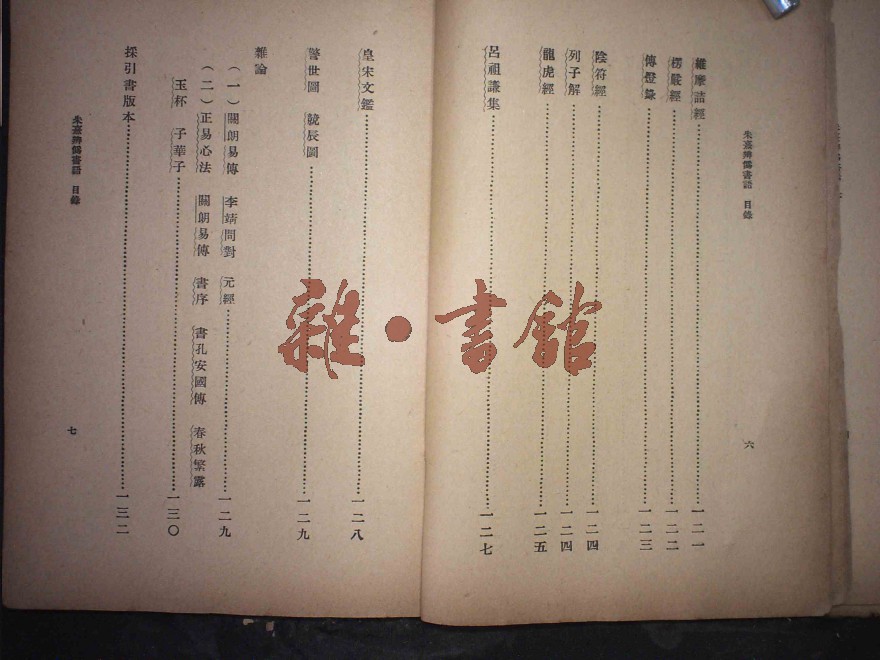 朱熹辨僞書語 目錄
維摩詰經…一二一
楞嚴經…一二二
傳燈錄…一二三
陰符經…一二四
列子解…一二四
龍虎經…一二五
呂祖謙集…一二七
六
皇宋文鑑…一二八
警世圖 競辰圖…一二九
雜論
(一)關朗易傳 李靖問對 元經…一二九
(二)正易心法 關朗易傳 書序 書孔安國傳 春秋繁露
玉杯 子華子…一三〇
採引書版本…一三二
朱熹辨僞書語 目錄
七
雜·書館